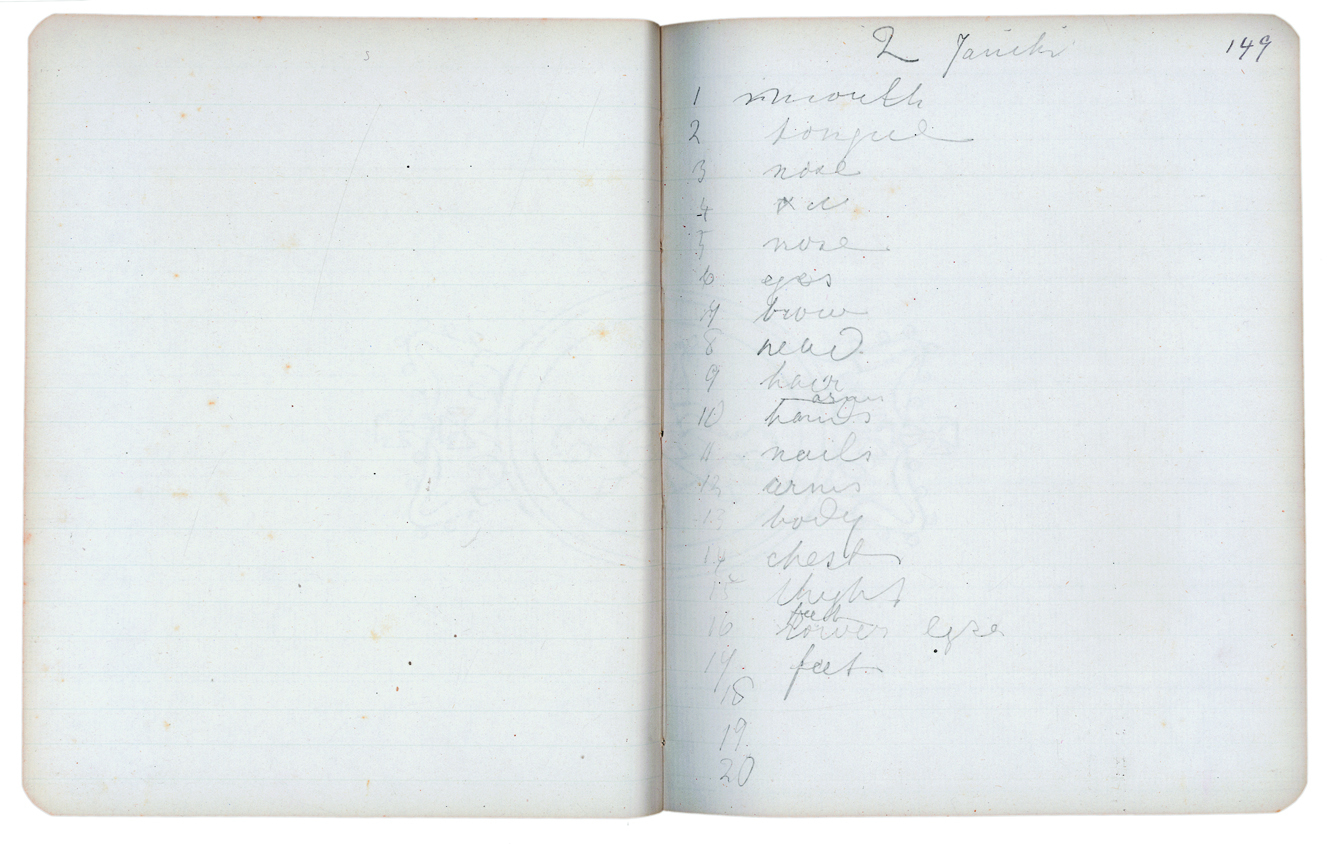 149
2 Janicki
1 mouth
2 tongue
3 nose
4
5 nose
6 eyes
7 brow
8 head
9 hair
arms
10 hands
11 nails
12 arms
13 body
14 chest
15 thight
16 lower
17 feet
18
19
20